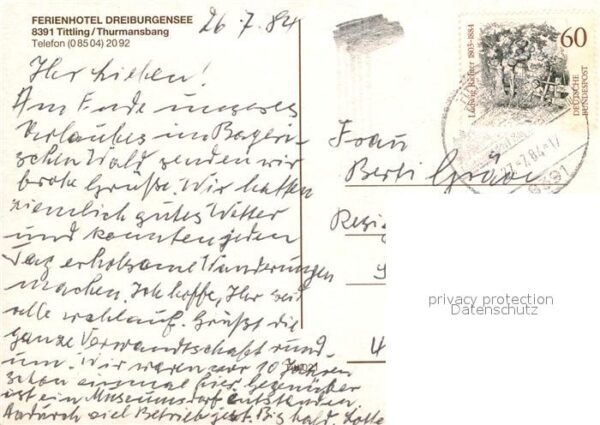 FERIENHOTEL DREIBURGENSEE
8391 Tittling/Thurmansbang
Telefon (0 85 04) 20 92
26.7.84
Ihr Lieben!
Am Ende unseres
Urlaubes im Bayeri-
schen Wald senden wir
frohe Grüße. Wir hatten
ziemlich gutes Wetter
und konnten jeden
Tag erholsame Wanderungen
machen. Ich hoffe, Ihr seid
alle wohlauf. Grüßt die
ganze Verwandtschaft rund-
um. Wir waren vor 10 Jahren
schon einmal hier. Gegenüber
ist ein Museumsdorf entstanden
dadurch viel Betrieb jetzt. Bis bald. Lotte
Ludwig Richter 1803-1884
60
DEUTSCHE
BUNDESPOST
27.7.84-17
8391
Frau
Berti
privacy protection
Datenschutz